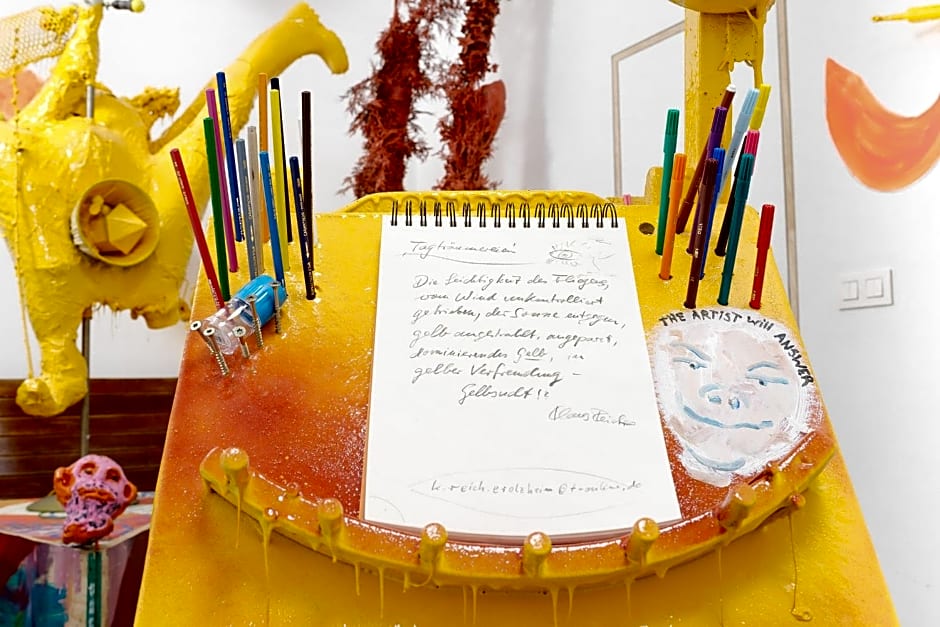 Tagträumerei
Die Leichtigkeit des Fliegens,
vom Wind unkontrolliert
getrieben, der Sonne entgegen,
gelb angestrahlt, angepasst,
dominierendes Gelb, in
gelber Verfremdung –
Gelbsucht!!
Klaus
k.reich.erolzheim@t-online.de
THE ARTIST WILL ANSWER